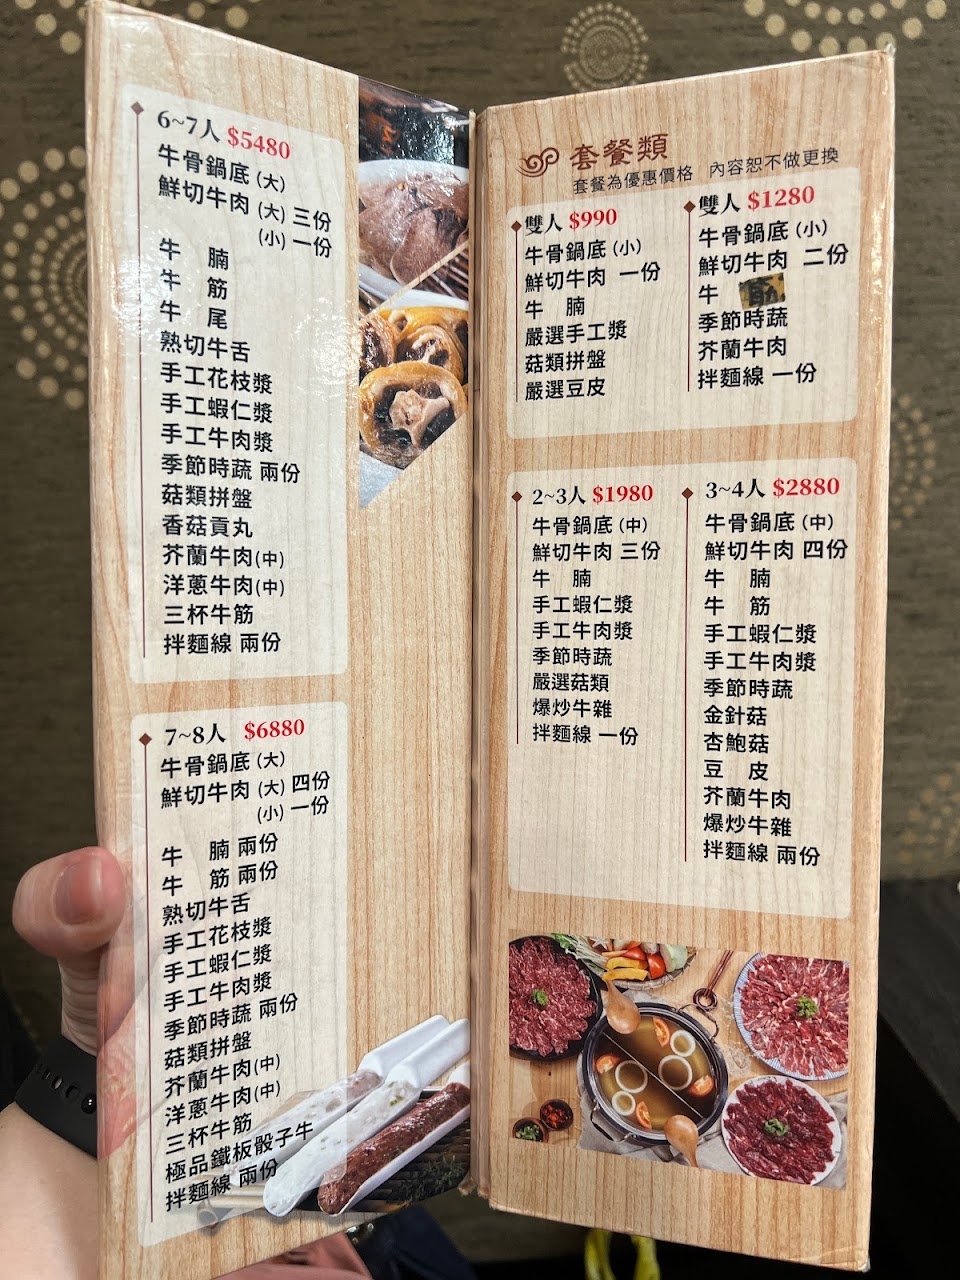 6~7人 $5480
牛骨鍋底(大)
鮮切牛肉(大)三份
(小)一份
牛 腩
牛 筋
牛 尾
熟切牛舌
手工花枝漿
手工蝦仁漿
手工牛肉漿
季節時蔬 兩份
菇類拼盤
香菇貢丸
芥蘭牛肉(中)
洋蔥牛肉(中)
三杯牛筋
拌麵線 兩份
7~8人 $6880
牛骨鍋底(大)
鮮切牛肉(大)四份
(小)一份
牛 腩 兩份
牛 筋 兩份
熟切牛舌
手工花枝漿
手工蝦仁漿
手工牛肉漿
季節時蔬 兩份
菇類拼盤
芥蘭牛肉(中)
洋蔥牛肉(中)
三杯牛筋
極品鐵板骰子牛
拌麵線 兩份
套餐類
套餐為優惠價格 內容恕不做更換
雙人 $990
牛骨鍋底(小)
鮮切牛肉 一份
牛 腩
嚴選手工漿
菇類拼盤
嚴選豆皮
雙人 $1280
牛骨鍋底(小)
鮮切牛肉 二份
牛
季節時蔬
芥蘭牛肉
拌麵線 一份
2~3人 $1980
牛骨鍋底(中)
鮮切牛肉 三份
牛 腩
手工蝦仁漿
手工牛肉漿
季節時蔬
嚴選菇類
爆炒牛雜
拌麵線 一份
3~4人 $2880
牛骨鍋底(中)
鮮切牛肉 四份
牛 腩
牛 筋
手工蝦仁漿
手工牛肉漿
季節時蔬
金針菇
杏鮑菇
豆 皮
芥蘭牛肉
爆炒牛雜
拌麵線 兩份